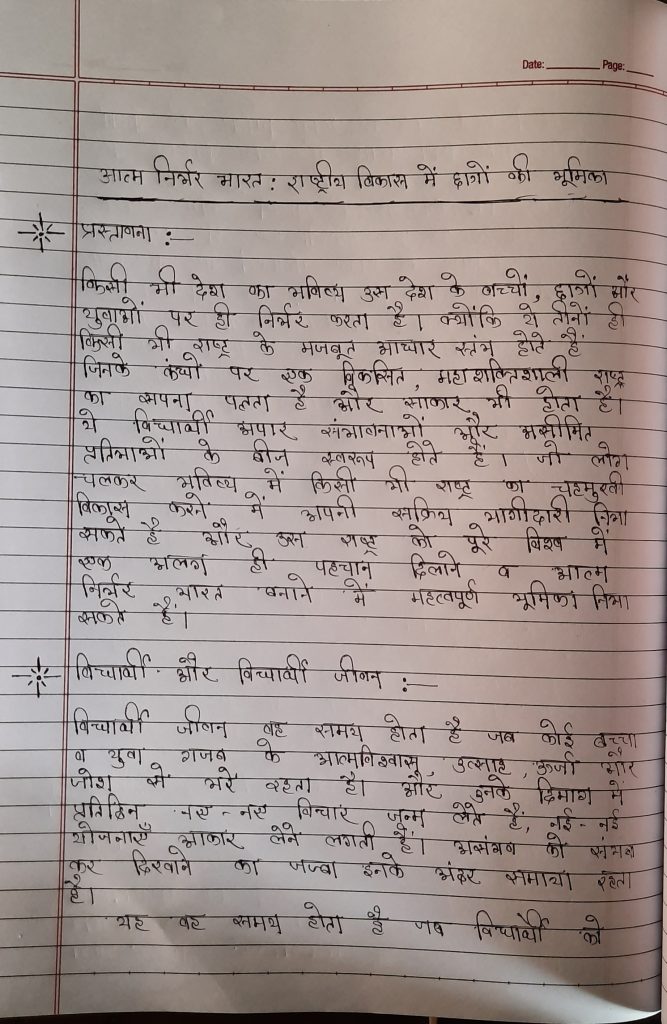 Date: ________ Page: ____
आत्म निर्भर भारत : राष्ट्रीय विकास में छात्रों की भूमिका
प्रस्तावना :—
किसी भी देश का भविष्य उस देश के बच्चों, छात्रों और
युवाओं पर ही निर्भर करता है। क्योंकि ये तीनों ही
किसी भी राष्ट्र के मजबूत आधार स्तंभ होते हैं
जिनके कंधो पर एक विकसित, महाशक्तिशाली राष्ट्र
का सपना पलता है और साकार भी होता है।
ये विद्यार्थी अपार संभावनाओं और असीमित
प्रतिभाओं के बीज स्वरूप होते हैं। जो लोग
चलकर भविष्य में किसी भी राष्ट्र का चहुमुखी
विकास करने में अपनी सक्रिय भागीदारी निभा
सकते है और उस राष्ट्र को पूरे विश्व में
एक अलग ही पहचान दिलाने व आत्म
निर्भर भारत बनाने में महत्वपूर्ण भूमिका निभा
सकते हैं।
विद्यार्थी और विद्यार्थी जीवन :—
विद्यार्थी जीवन वह समय होता है जब कोई बच्चा
व युवा गजब के आत्मविश्वास, उत्साह, ऊर्जा और
जोश से भरे रहता है। और इनके दिमाग में
प्रतिदिन नए-नए विचार जन्म लेते हैं, नई-नई
योजनाएँ आकार लेने लगती हैं। असंभव को संभव
कर दिखाने का जज्बा इनके अंदर समाया रहता
है।
यह वह समय होता है जब विद्यार्थी को